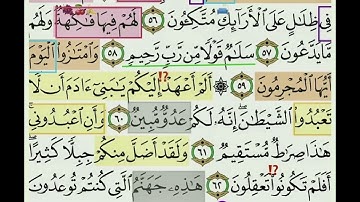 فِى ظِلَـٰلٍ عَلَى ٱلْأَرَآئِكِ مُتَّكِـُٔونَ ٥٦ لَهُمْ فِيهَا فَـٰكِهَةٌ وَلَهُم
مَّا يَدَّعُونَ ٥٧ سَلَـٰمٌ قَوْلًا مِّن رَّبٍّ رَّحِيمٍ ٥٨ وَٱمْتَـٰزُوا۟ ٱلْيَوْمَ
أَيُّهَا ٱلْمُجْرِمُونَ ٥٩ أَلَمْ أَعْهَدْ إِلَيْكُمْ يَـٰبَنِىٓ ءَادَمَ أَن لَّا
تَعْبُدُوا۟ ٱلشَّيْطَـٰنَ إِنَّهُۥ لَكُمْ عَدُوٌّ مُّبِينٌ ٦٠ وَأَنِ ٱعْبُدُونِى
هَـٰذَا صِرَٰطٌ مُّسْتَقِيمٌ ٦١ وَلَقَدْ أَضَلَّ مِنكُمْ جِبِلًّا كَثِيرًا
أَفَلَمْ تَكُونُوا۟ تَعْقِلُونَ ٦٢ هَـٰذِهِۦ جَهَنَّمُ ٱلَّتِى كُنتُمْ تُوعَدُونَ